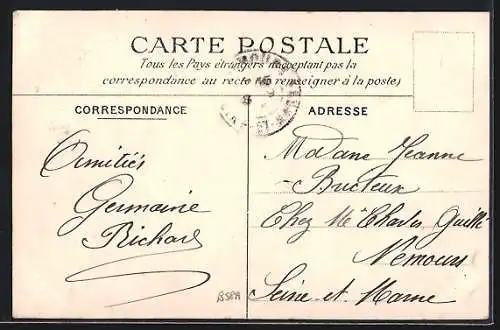 CARTE POSTALE
Tous les Pays étrangers n'acceptant pas la
correspondance au recto (se renseigner à la poste)
CORRESPONDANCE
ADRESSE
Amitiés
Germaine
Richard
Madame Jeanne
Bucteux
Chez Mr Charles Guillé
Nemours
Seine et Marne